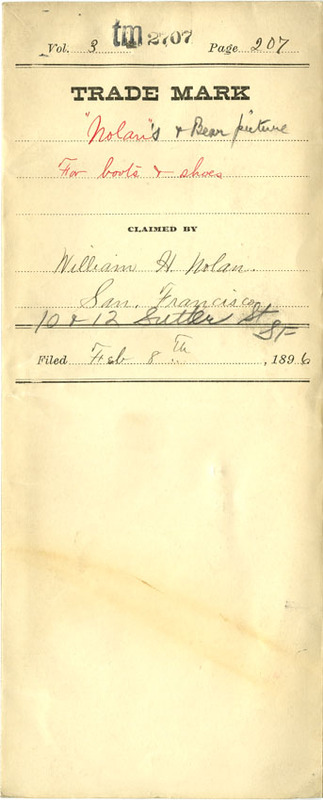 Vol. 3 tm 2707 Page 207
TRADE MARK
"Nolan"s & Bear picture
For boots & shoes
CLAIMED BY
William H Nolan.
San Francisco
10 & 12 Sutter St
SF
Filed Feb 8th, 1896